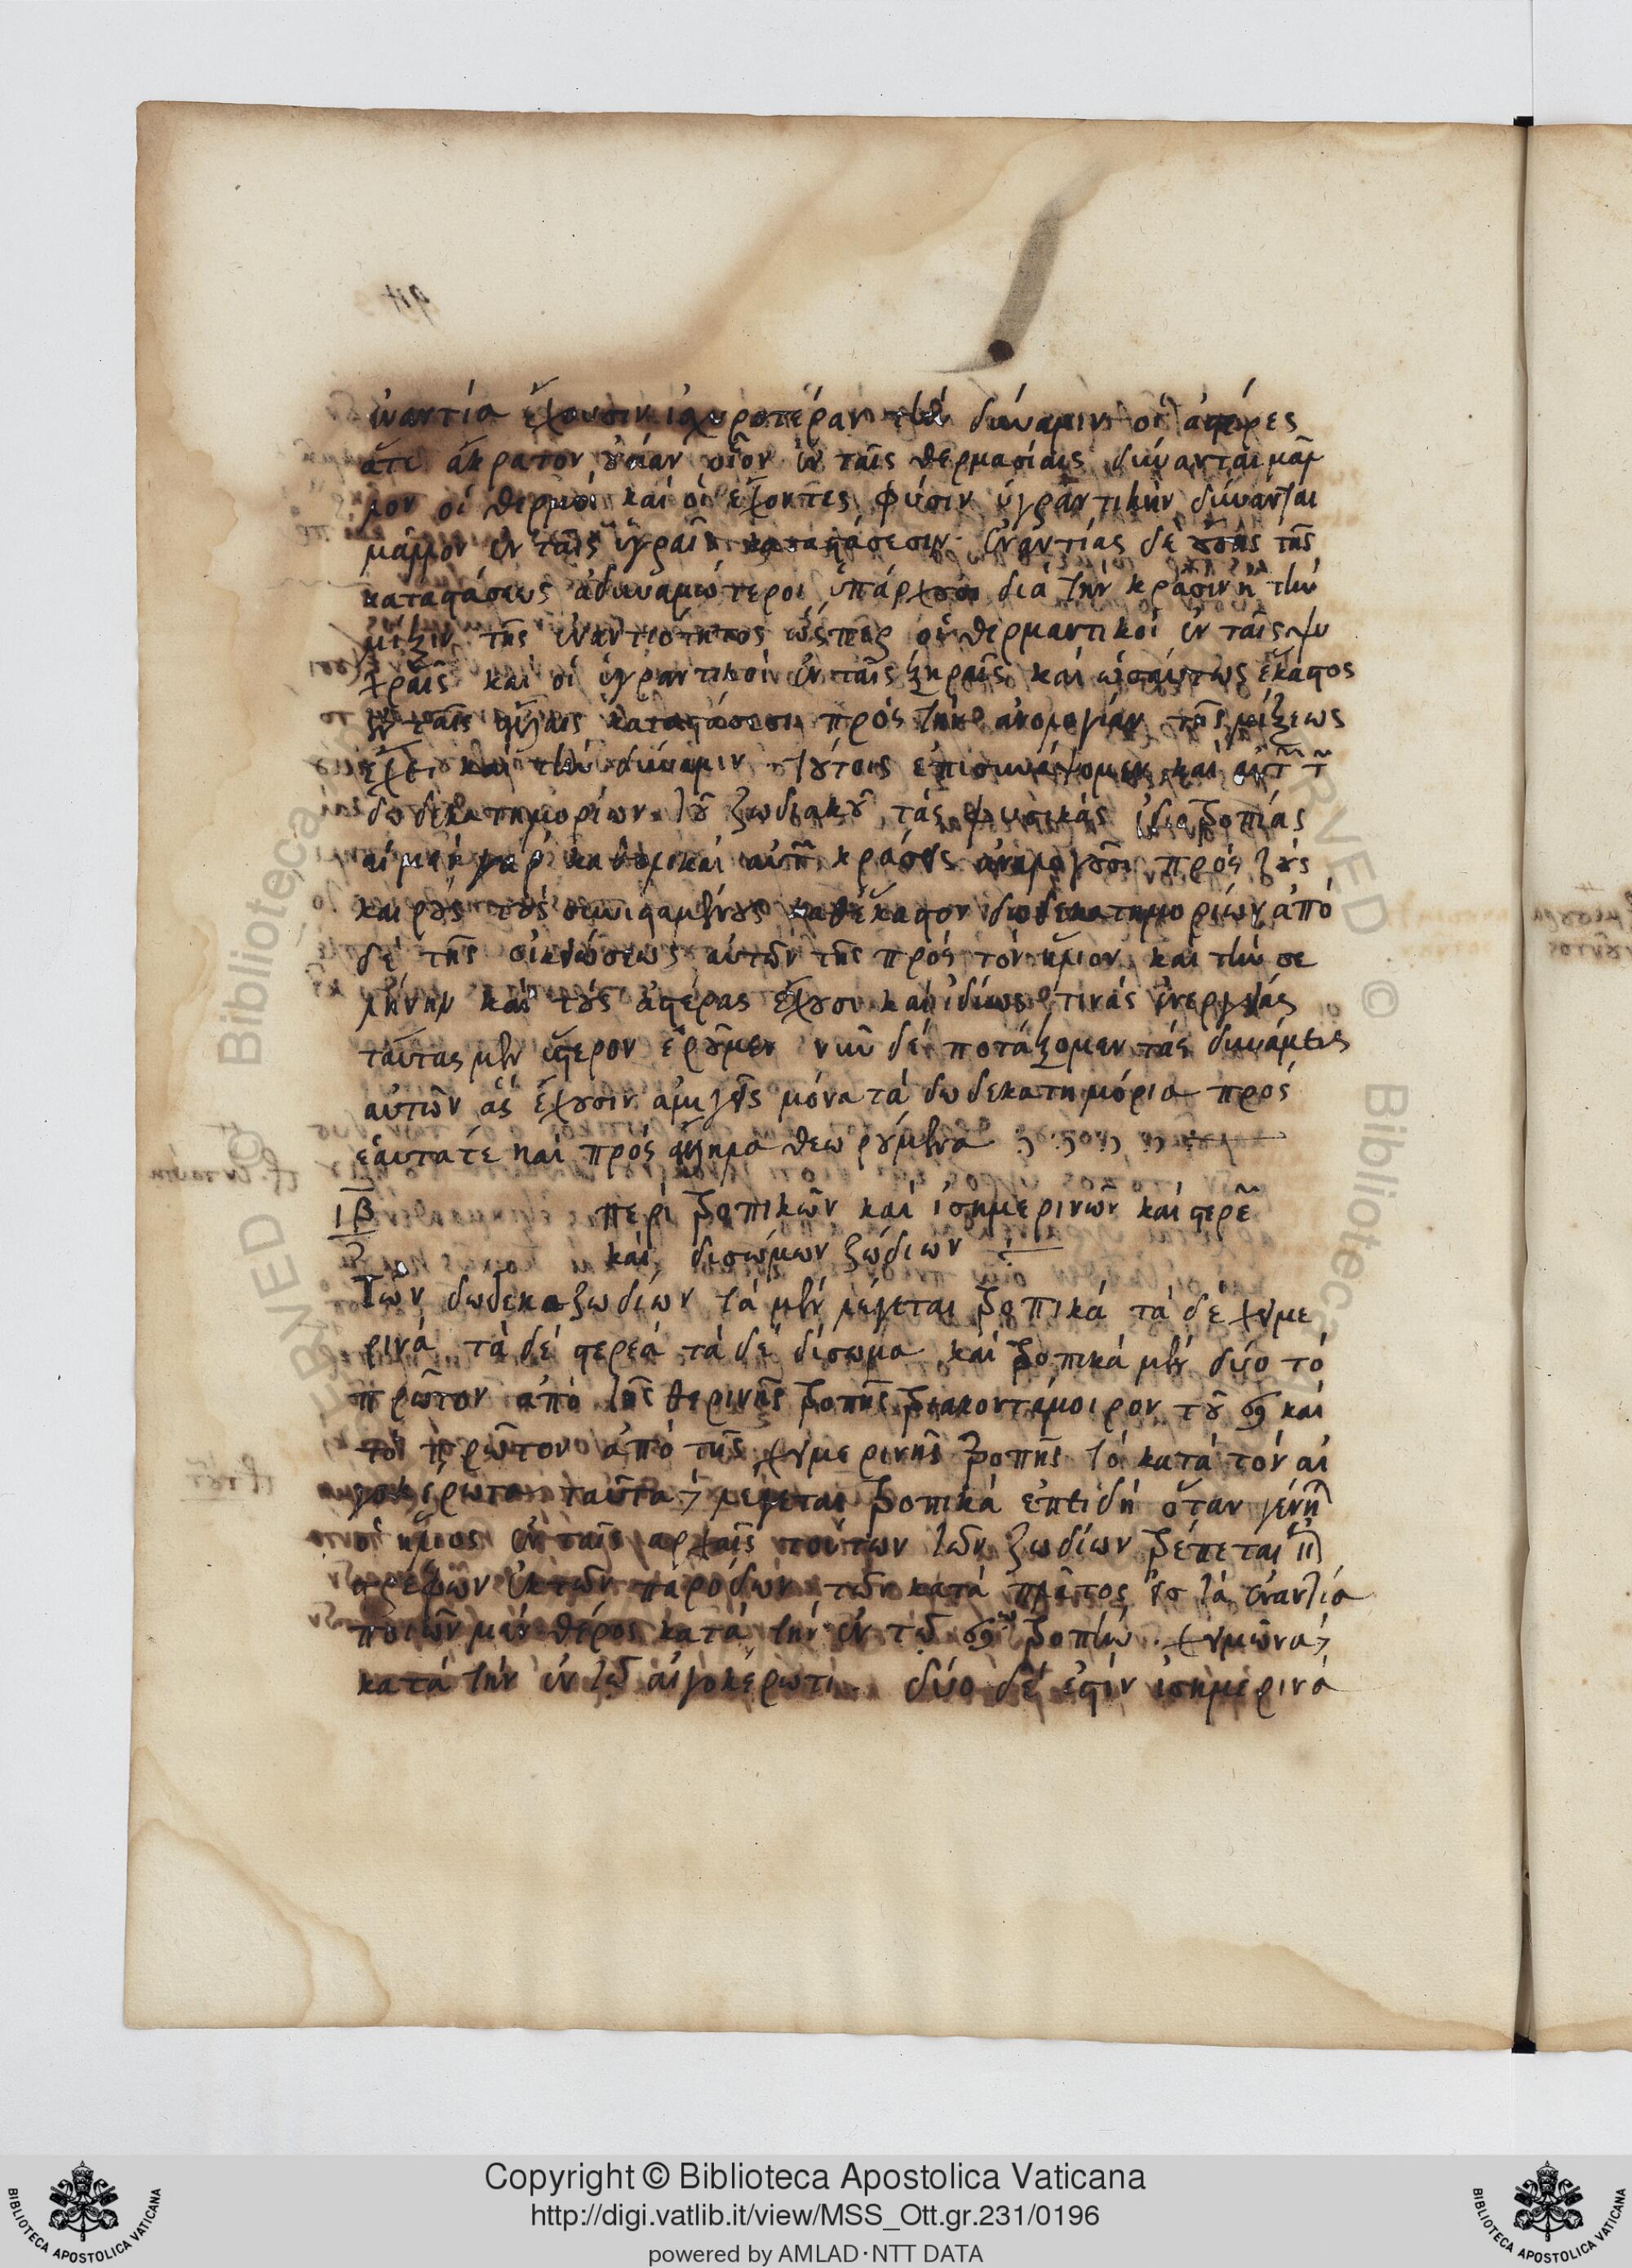 ἐναντία ἔχουσιν ἰσχυροτέραν τὴν δύναμιν οἱ ἀστέρες
ἅτε ἄκρατον οὖσαν οἷον ἐν ταῖς θερμασίαις δύνανται μᾶλ
λον οἱ θερμοὶ καὶ οἱ ἔχοντες φύσιν ὑγραντικὴν δύνανται
μᾶλλον ἐν ταῖς ὑγραῖς καταστάσεσιν. ἐναντίας δὲ τῆς
καταστάσεως ἀδυναμώτεροι ὑπάρχουσι διὰ τὴν κρᾶσιν ἢ τὴν
μίξιν τῆς ἐναντιότητος ὥσπερ οἱ θερμαντικοὶ ἐν ταῖς ψυ
χραῖς καὶ οἱ ὑγραντικοὶ ἐν ταῖς ξηραῖς καὶ ὡσαύτως ἕκαστος
ἐν ταῖς καταστάσεσι πρὸς τὴν ἀναλογίαν τῆς μίξεως
ἔχει καὶ τὴν δύναμιν τούτοις ἐπισυνάψομεν καὶ αὐτ τ
δωδεκατημορίων τοῦ ζωδιακοῦ τὰς φυσικὰς ἰδιοτροπίας
αἱ μὲν γὰρ καθολικαὶ αὐτῶν κράσεις ἀναλογοῦσι πρὸς τοὺς
καιροὺς τοὺς συνισταμένους καθ' ἕκαστον δωδεκατημορίων ἀπὸ
δὲ τῆς οἰκειώσεως αὐτῶν τῆς πρὸς τὸν ἥλιον καὶ τὴν σε
λήνην καὶ τοὺς ἀστέρας ἔχουσι καὶ ἰδίως τινὰς ἐνεργείας
ταύτας μὲν ὕστερον ἐροῦμεν νῦν δὲ ποτάξομεν τὰς δυνάμεις
αὐτῶν ἃς ἔχουσιν ἀμιγεῖς μόνα τὰ δωδεκατημόρια πρὸς
ἑαυτά τε καὶ πρὸς ἄλληλα θεωρούμενα
ιβ περὶ τροπικῶν καὶ ἰσημερινῶν καὶ στερε
καὶ δισώμων ζωδίων
Τῶν δώδεκα ζωδίων τὰ μὲν λέγεται τροπικὰ τὰ δὲ χημε
ρινὰ τὰ δὲ στερεὰ τὰ δὲ δίσωμα καὶ τροπικὰ μὲν δύο τὸ
πρῶτον ἀπὸ τῆς θερινῆς τροπῆς τριακοντάμοιρον τοῦ ♋ καὶ
τὸ πρῶτον ἀπὸ τῆς χημερινῆς τροπῆς τὸ κατὰ τὸν αἰ
γοκέρωτα ταῦτα λέγεται τροπικὰ ἐπειδὴ ὅταν γένη
ὁ ἥλιος ἐν ταῖς ἀρχαῖς τούτων τῶν ζωδίων τρέπεται
στρέφων ἐκ τῶν παρόδων τῶν κατὰ πλάτος εἰς τὰ ἐναντία
ποιῶν μὲν θέρος κατὰ τὴν ἐν τῷ ♋ τροπὴν χημῶνα
κατὰ τὴν ἐν τῷ αἰγοκέρωτι. δύο δέ ἐστιν ἰσημερινὰ
Copyright © Biblioteca Apostolica Vaticana
http://digi.vatlib.it/view/MSS_Ott.gr.231/0196
powered by AMLAD·NTT DATA
BIBLIOTECA APOSTOLICA VATICANA
BIBLIOTECA APOSTOLICA VATICANA